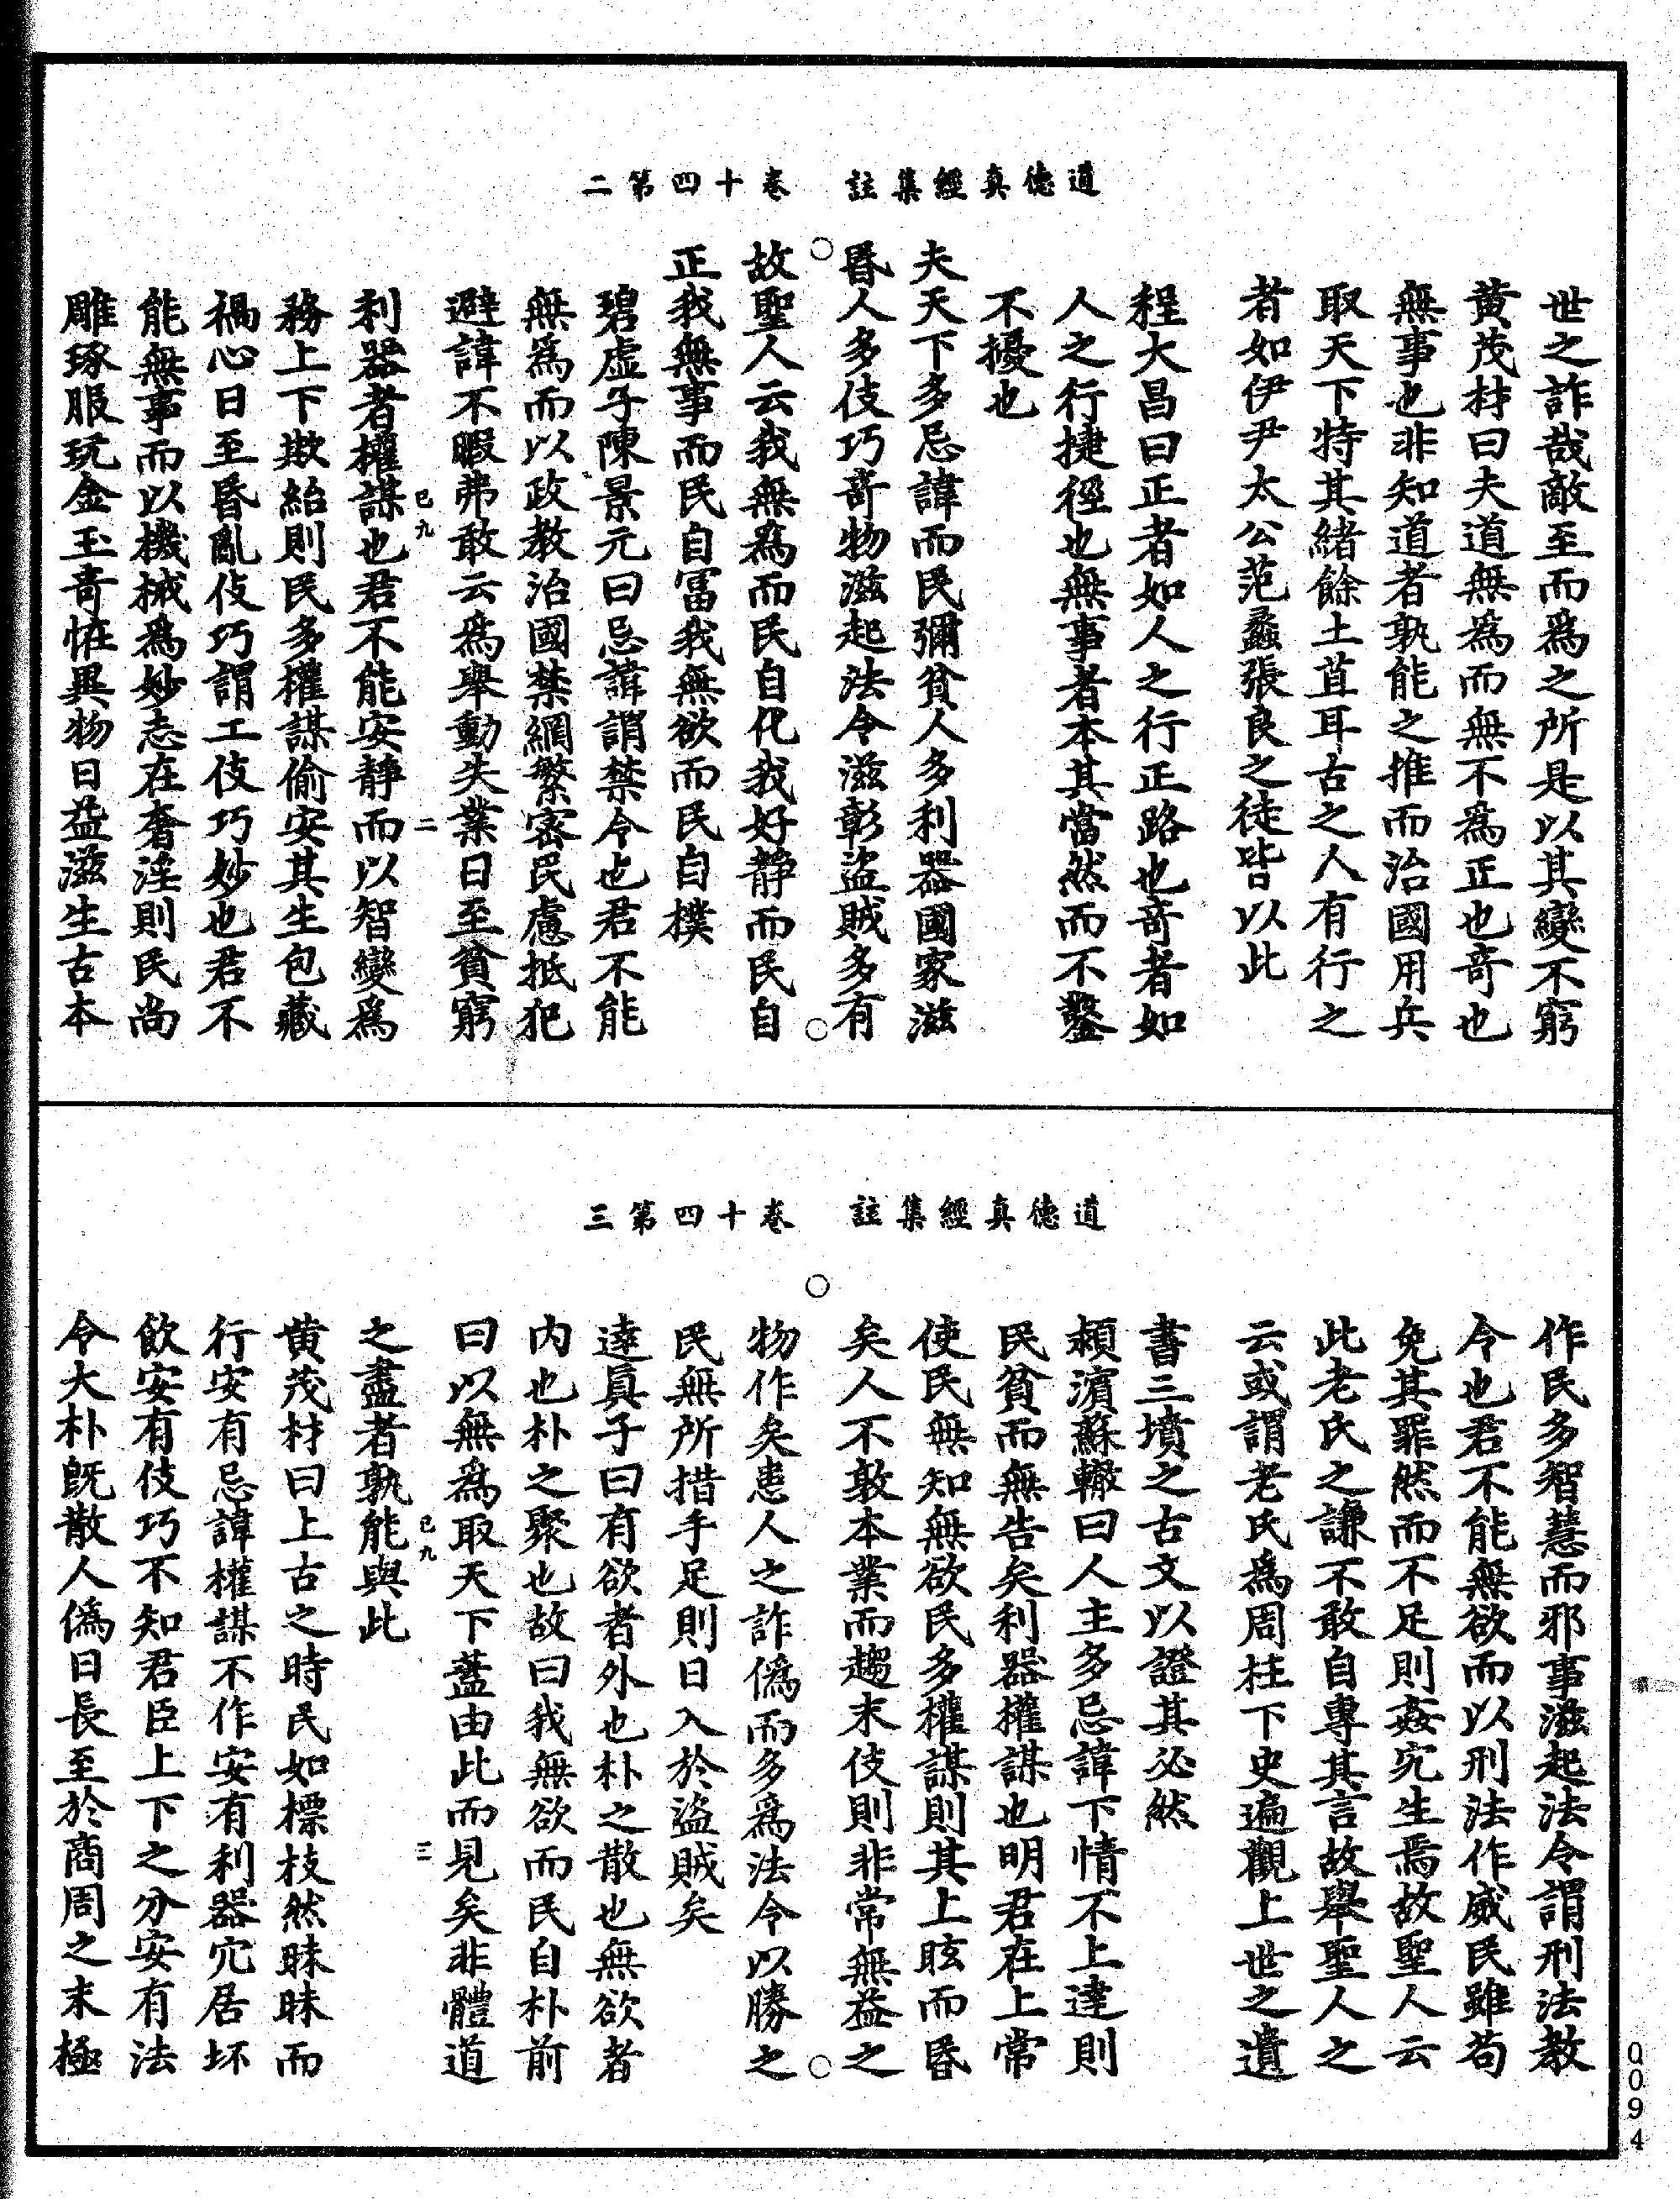 道德真經集註　卷十四第二
世之詐哉敵至而爲之所是以其變不窮
黄茂材曰夫道無爲而無不爲正也竒也
無事也非知道者孰能之推而治國用兵
取天下特其緒餘土苴耳古之人有行之
者如伊尹太公范蠡張良之徒皆以此
程大昌曰正者如人之行正路也竒者如
人之行捷徑也無事者本其當然而不鑿
不擾也
夫天下多忌諱而民彌貧人多利器國家滋
昬人多伎巧竒物滋起法令滋彰盜賊多有
故聖人云我無爲而民自化我好靜而民自
正我無事而民自富我無欲而民自樸
碧虛子陳景元曰忌諱謂禁令也君不能
無爲而以政教治國禁網繁密民慮抵犯
避諱不暇弗敢云爲舉動失業日至貧窮
已九　二
利器者權謀也君不能安靜而以智變爲
務上下欺紿則民多權謀偷安其生包藏
禍心日至昬亂伎巧謂工伎巧妙也君不
能無事而以機械爲妙志在奢淫則民尚
雕琢服玩金玉竒恠異物日益滋生古本
道德真經集註　卷十四第三
作民多智慧而邪事滋起法令謂刑法教
令也君不能無欲而以刑法作威民雖苟
免其罪然而不足則姦宄生焉故聖人云
此老氏之謙不敢自專其言故舉聖人之
云或謂老氏爲周柱下史遍觀上世之遺
書三墳之古文以證其必然
頴濵蘇轍曰人主多忌諱下情不上達則
民貧而無告矣利器權謀也明君在上常
使民無知無欲民多權謀則其上眩而昬
矣人不敦本業而趨末伎則非常無益之
物作矣患人之詐僞而多爲法令以勝之
民無所措手足則日入於盜賊矣
達真子曰有欲者外也朴之散也無欲者
内也朴之聚也故曰我無欲而民自朴前
曰以無爲取天下蓋由此而見矣非體道
已九　三
之盡者孰能與此
黄茂材曰上古之時民如標枝然昧昧而
行安有忌諱權謀不作安有利器穴居坏
飲安有伎巧不知君臣上下之分安有法
令大朴旣散人僞日長至於商周之末極
Q094